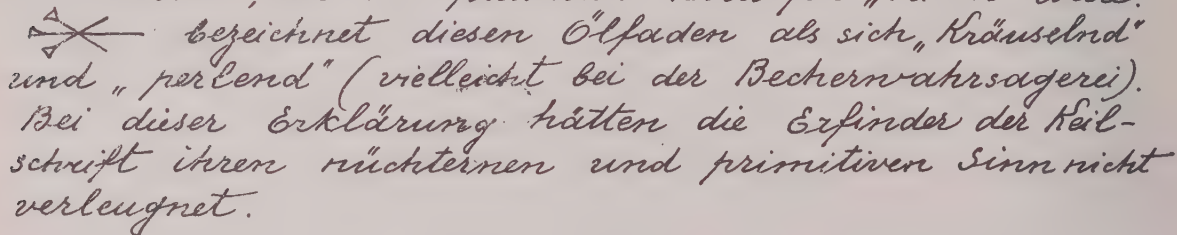 bezeichnet diesen Ölfaden als sich „Kräuselnd"
und „perlend" (vielleicht bei der Becherwahrsagerei).
Bei dieser Erklärung hätten die Erfinder der Keil-
schrift ihren nüchternen und primitiven Sinn nicht
verleugnet.